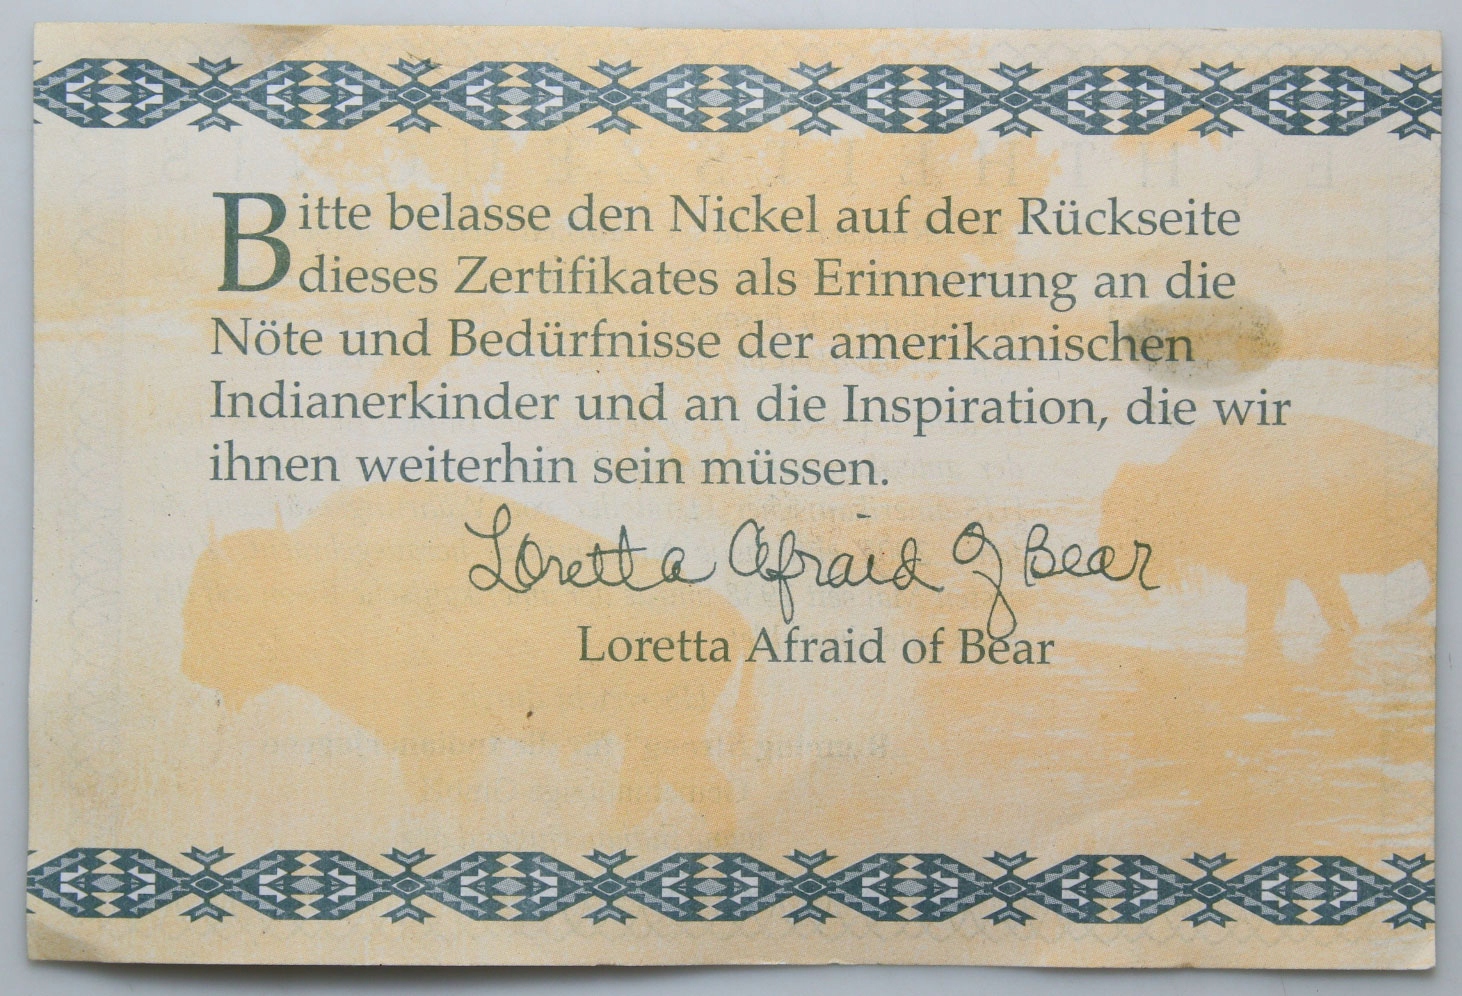 Bitte belasse den Nickel auf der Rückseite
dieses Zertifikates als Erinnerung an die
Nöte und Bedürfnisse der amerikanischen
Indianerkinder und an die Inspiration, die wir
ihnen weiterhin sein müssen.
Loretta Afraid Of Bear
Loretta Afraid of Bear